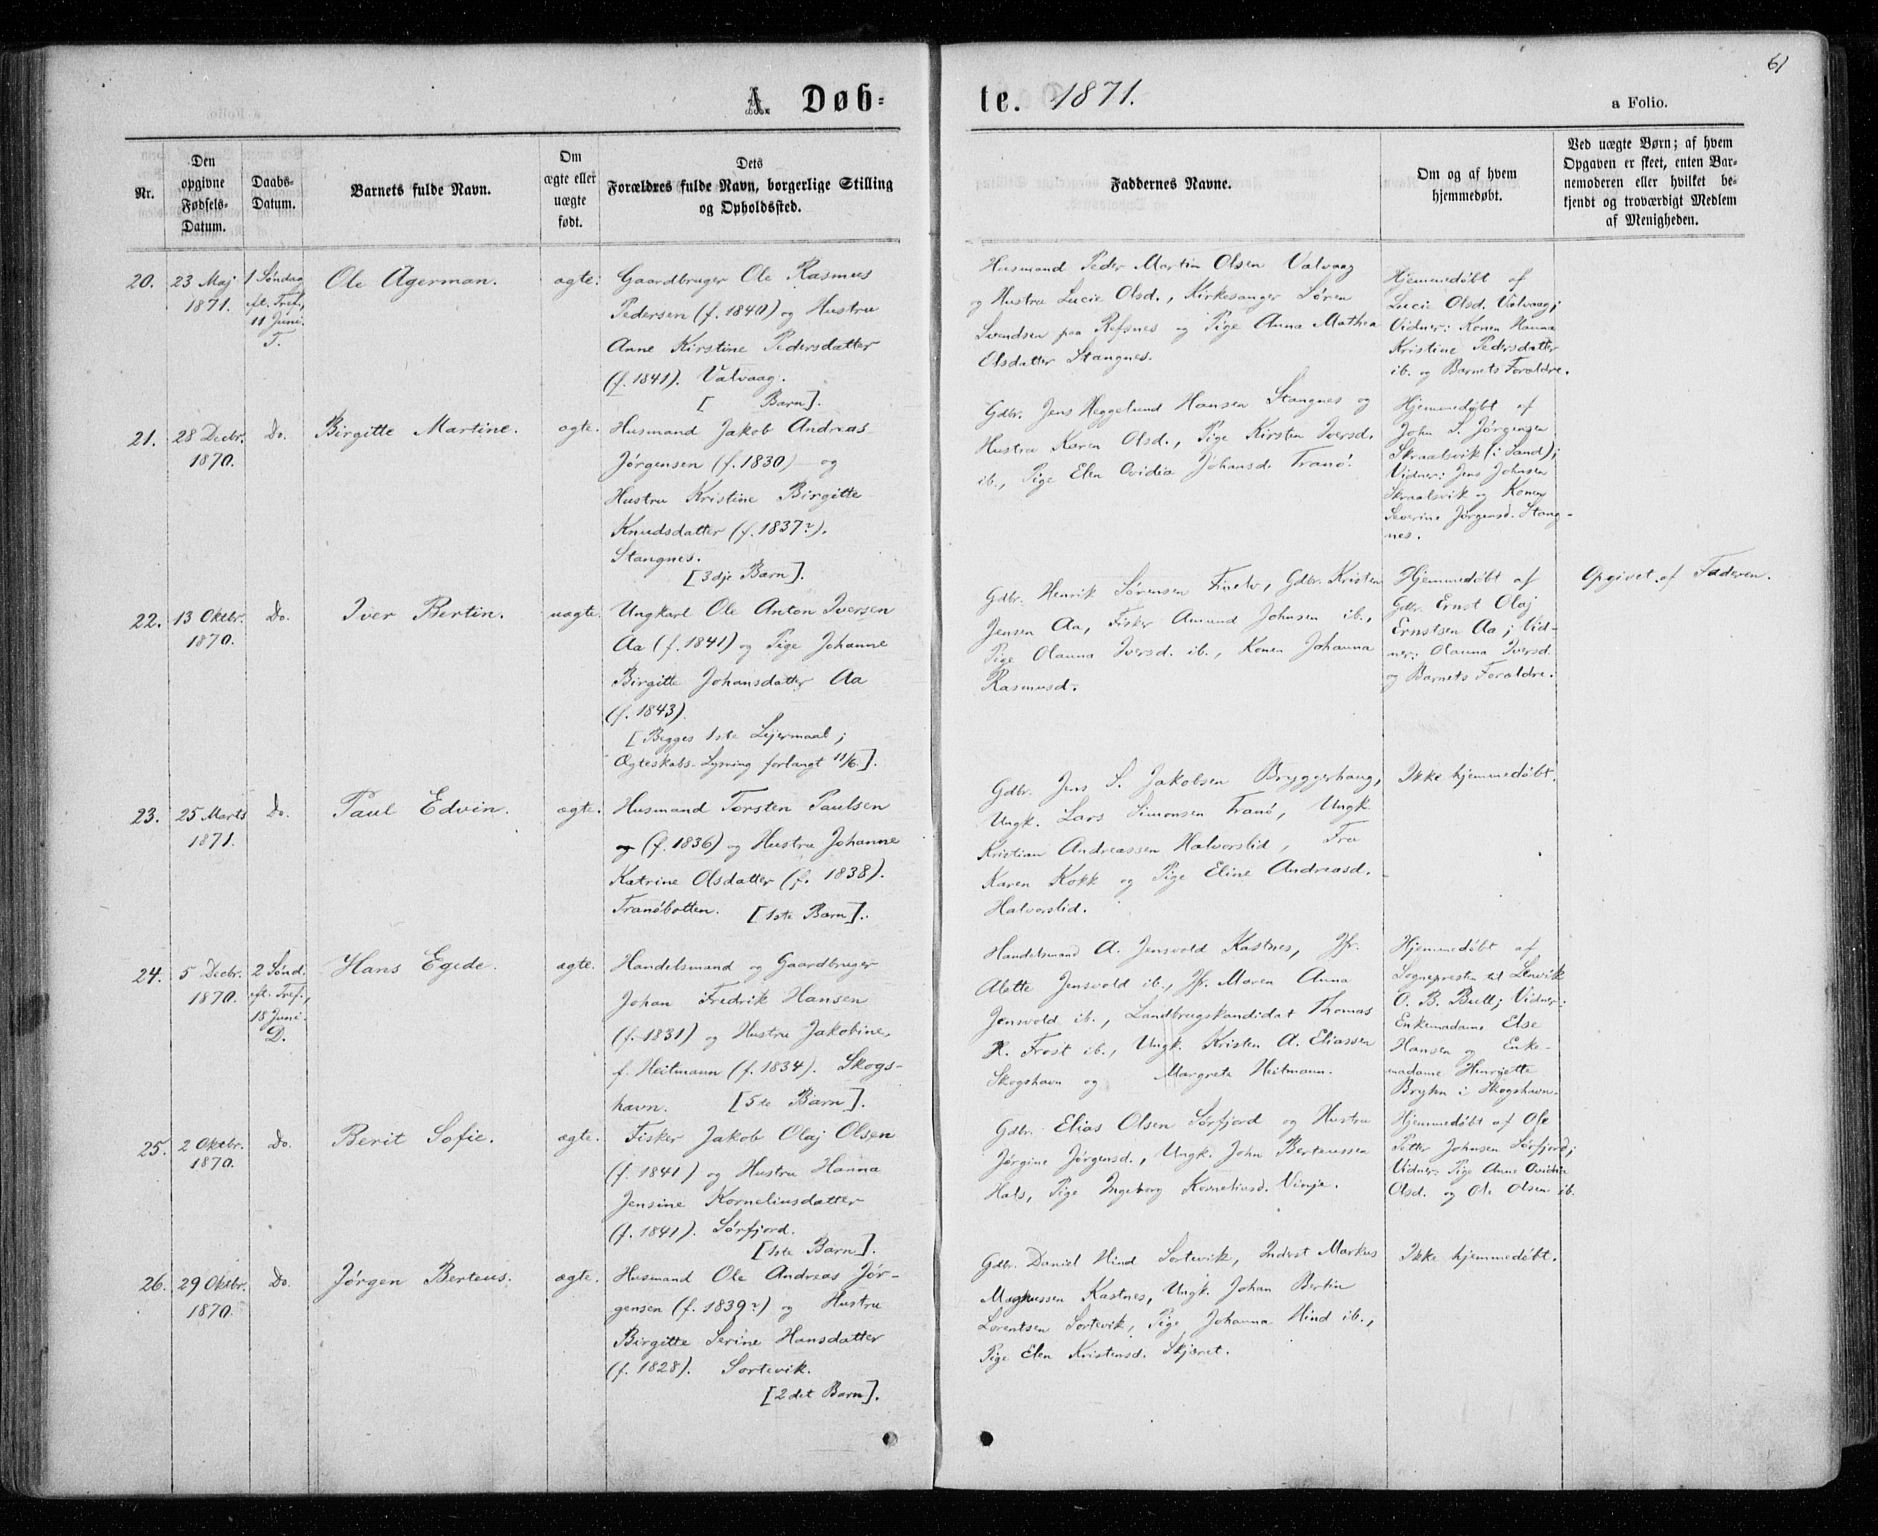 61
A. Døb-
te. 1871.
a Folio.
Nr.
Den opgivne Fødsels-Datum.
Daabs-Datum.
Barnets fulde Navn.
Om ægte eller uægte født.
Dets Forældres fulde Navn, borgerlige Stilling og Opholdssted.
Faddernes Navne.
Om og af hvem hjemmedøbt.
Ved uægte Børn; af hvem Opgaven er skeet, enten Barnemoderen eller hvilket bekjendt og troværdigt Medlem af Menigheden.
20.
23 Maj
1871.
1 Søndag
eft. Tref.,
11 Juni.
T.
Ole Agerman.
ægte.
Gaardbruger Ole Rasmus
Pedersen (f. 1840) og Hustru
Anne Kirstine Pedersdatter
(f. 1841). Valvaag.
[ Barn].
Husmand Peder Martin Olsen Valvaag
og Hustru Lucie Olsd., Kirkesanger Søren
Svendsen paa Refsnes og Pige Anna Mathea
Olsdatter Stangnes.
Hjemmedøbt af
Lucie Olsd. Valvaag;
Vidner: Konen Hanna
Kristine Pedersdatter
ib. og Barnets Forældre.
21.
28 Decbr.
1870.
Do.
Birgitte Martine.
ægte.
Husmand Jakob Andreas
Jørgensen (f. 1830) og
Hustru Kristine Birgitte
Knudsdatter (f. 1837?).
Stangnes.
[3dje Barn].
Gdbr. Jens Heggelund Hansen Stangnes og
Hustru Karen Olsd., Pige Kirsten Iversd.
ib., Pige Elen Ovidia Johansd. Tranø.
Hjemmedøbt af
John S. Jørgensen
Skraalsvik (i Sand);
Vidner: Jens Johnsen
Skraalsvik og Konen
Severine Jørgensd. Stang-
nes.
22.
13 Oktbr.
1870.
Do.
Iver Bertin.
uægte.
Ungkarl Ole Anton Iversen
Aa (f. 1841) og Pige Johanne
Birgitte Johansdatter Aa
(f. 1843).
[Begges 1ste Lejermaal;
Ægteskabs-Lysning forlangt 11/6].
Gdbr. Henrik Sørensen Gdbr. Kristen
Jensen Aa, Fisker Amund Johnsen ib.,
Pige Olanna Iversd. ib., Konen Johanna
Rasmusd.
Hjemmedøbt af
Gdbr. Ernst Olaj
Ernstsen Aa; Vid-
ner: Olanna Iversd.
og Barnets Forældre.
Opgivet af Faderen.
23.
25 Marts
1871.
Do.
Paul Edvin.
ægte.
Husmand Torsten Paulsen
(f. 1836) og Hustru Johanne
Katrine Olsdatter (f. 1838).
Tranøbotten. [1ste Barn].
Gdbr. Jens S. Jakobsen Bryggerhaug,
Ungk. Lars Simonsen Tranø, Ungk.
Kristian Andreassen Halvorslid, Fru
Karen Kokk og Pige Eline Andreasd.
Halvorslid.
Ikke hjemmedøbt.
24.
5 Decbr.
1870.
2 Sønd.
eft. Tref.,
18 Juni.
D.
Hans Egede.
ægte.
Handelsmand og Gaardbruger
Johan Fredrik Hansen
(f. 1831) og Hustru Jakobine,
f. Heitmann (f. 1834). Skogs-
havn. [5te Barn].
Handelsmand A. Jensvold Kastnes, Jfr.
Alette Jensvold ib., Jfr. Maren Anna
Jensvold ib., Landbrugskandidat Thomas
R. Frost ib., Ungk. Kristen A. Eliassen
Skogshavn og Margrete Heitmann.
Hjemmedøbt af
Sognepresten til Lenvik
O. B. Bull; Vidner:
Enkemadame Else
Hansen og Enke-
madame Henrijette
i Skogshavn.
25.
2 Oktbr.
1870.
Do.
Berit Sofie.
ægte.
Fisker Jakob Olaj Olsen
(f. 1841) og Hustru Hanna
Jensine Korneliusdatter
(f. 1841). Sørfjord.
[1ste Barn].
Gdbr. Elias Olsen Sørfjord og Hustru
Jørgine Jørgensd., Ungk. John Berteussen
Hals, Pige Ingeborg Korneliusd. Vinje.
Hjemmedøbt af Ole
Petter Johnsen Sørfjord;
Vidner: Pige Anne Ovidia
Olsd. og Ole Olsen ib.
26.
29 Oktbr.
1870.
Do.
Jørgen Berteus.
ægte.
Husmand Ole Andreas Jør-
gensen (f. 1839?) og Hustru
Birgitte Serine Hansdatter
(f. 1828). Sortevik.
[2det Barn].
Gdbr. Daniel Hind Sortevik, Inderst Markus
Magnussen Kastnes, Ungk. Johan Bertin
Lorentsen Sortevik, Pige Johanna Hind ib.,
Pige Elen Kristensd. Skjæret.
Ikke hjemmedøbt.